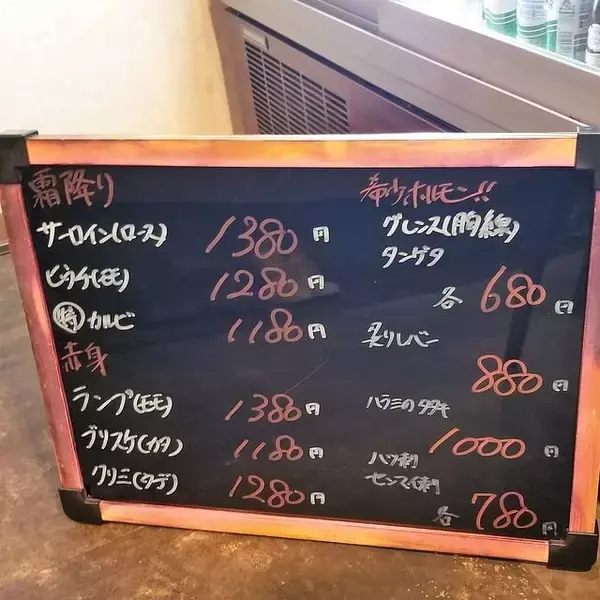 霜降り
サーロイン(ロース) 1380円
ヒウチ(モモ) 1280円
特カルビ 1180円
赤身
ランプ(モモ) 1380円
ブリスケ(カタ) 1180円
クリミ(ウデ) 1280円
希少ホルモン!!
グレンス(胸線)
タンゲタ
各 680円
炙りレバー
880円
ハラミのタタキ
1000円
ハツ刺
センマイ刺
各 780円